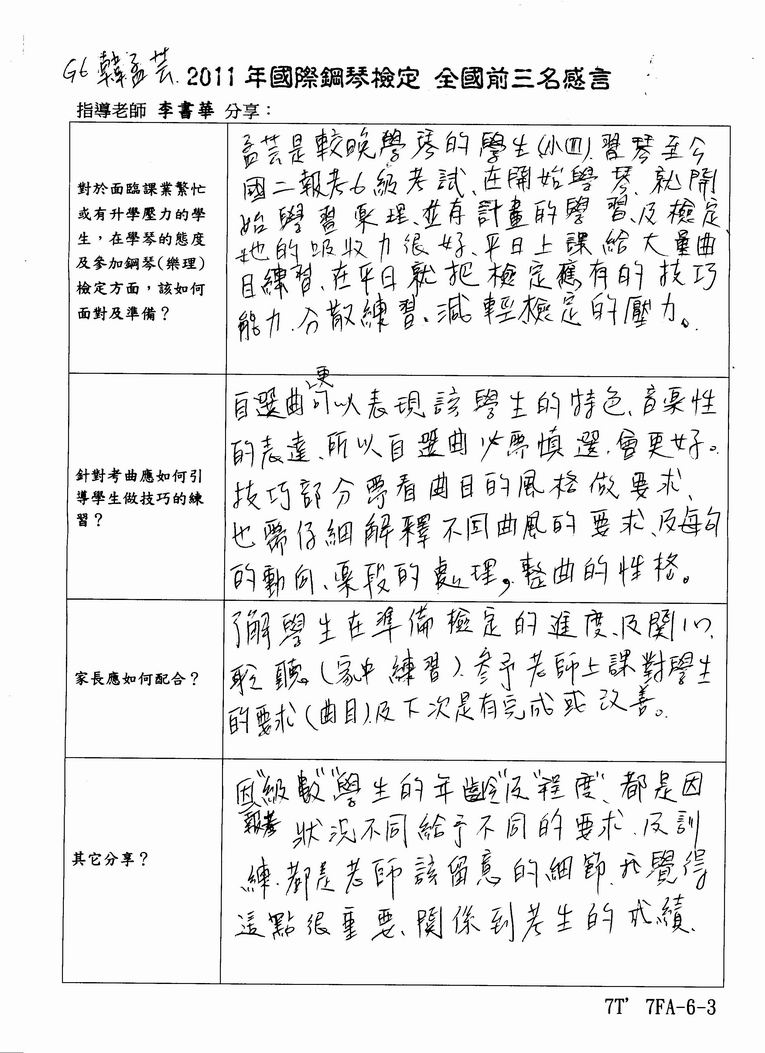 G6 韓孟芸. 2011 年國際鋼琴檢定 全國前三名感言
指導老師 李書華 分享：
對於面臨課業繁忙
或有升學壓力的學
生，在學琴的態度
及參加鋼琴(樂理)
檢定方面，該如何
面對及準備？
孟芸是較晚學琴的學生(小四).習琴至今
國二報考6級考試、在開始學琴、就開
始學習樂理、並有計畫的學習、及檢定
她的吸收力很好、平日上課給大量曲
目練習、在平日就把檢定應有的技巧
能力、分散練習、減輕檢定的壓力。
針對考曲應如何引
導學生做技巧的練
習？
更
自選曲可以表現該學生的特色、音樂性
的表達、所以自選曲必需慎選、會更好。
技巧部分需看曲目的風格做要求、
也需仔細解釋不同曲風的要求、及每句
的動向、樂段的處理，整曲的性格。
家長應如何配合？
了解學生在準備檢定的進度、及關心、
聆聽(家中練習)、參予老師上課對學生
的要求(曲目)及下次是有完成或改善。
其它分享？
因"級數""學生的年齡"及"程度"、都是因
報考 狀況不同給予不同的要求、及訓
練、都是老師該留意的細節、我覺得
這點很重要、關係到考生的成績、
7T' 7FA-6-3